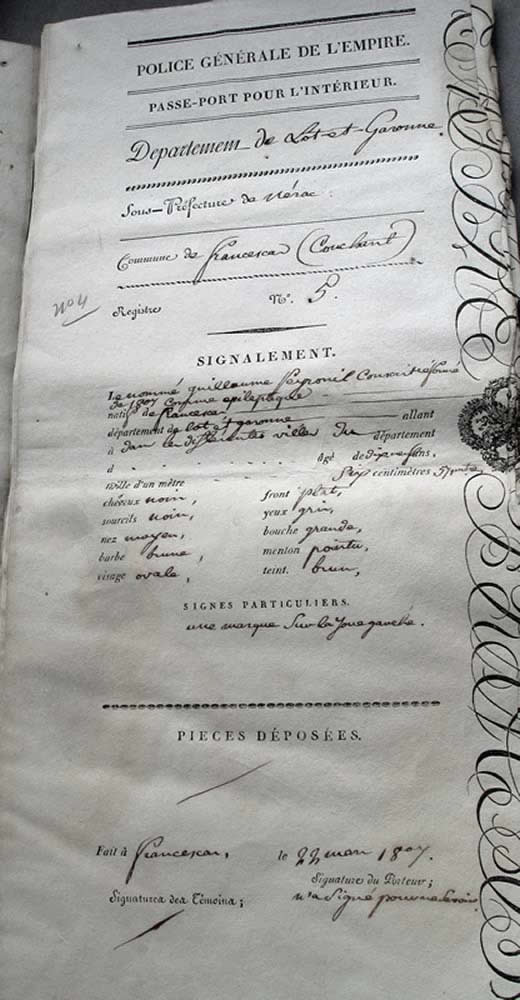 POLICE GÉNÉRALE DE L'EMPIRE.
PASSE-PORT POUR L'INTÉRIEUR.
Departement de Lot-et-Garonne.
Sous-Préfecture de Nérac.
Commune de francescas (Couchant)
no 4
Registre N°. 5.
SIGNALEMENT.
Le nommé guillaume Conscrit réformé
de 1807 comme epileptique
natif de francescas
département de lot et garonne allant
à dans les différentes villes du département
d âgé de ans,
taille d'un mètre Six centimètres
cheveux noirs, front plat,
sourcils noirs, yeux gris,
nez moyen, bouche grande,
barbe brune, menton pointu,
visage ovale, teint. brun,
SIGNES PARTICULIERS.
une marque Sur la Joue gauche.
PIECES DÉPOSÉES.
Fait à francescas, le 22 mars 1807.
Signature du Porteur;
Signatures des Témoins; n'a Signé pour ne Savoir